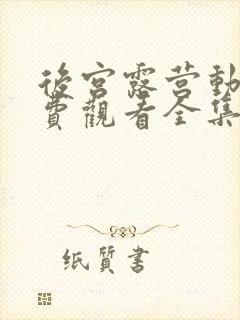 後宮露营動
費觀看全集
纸質書